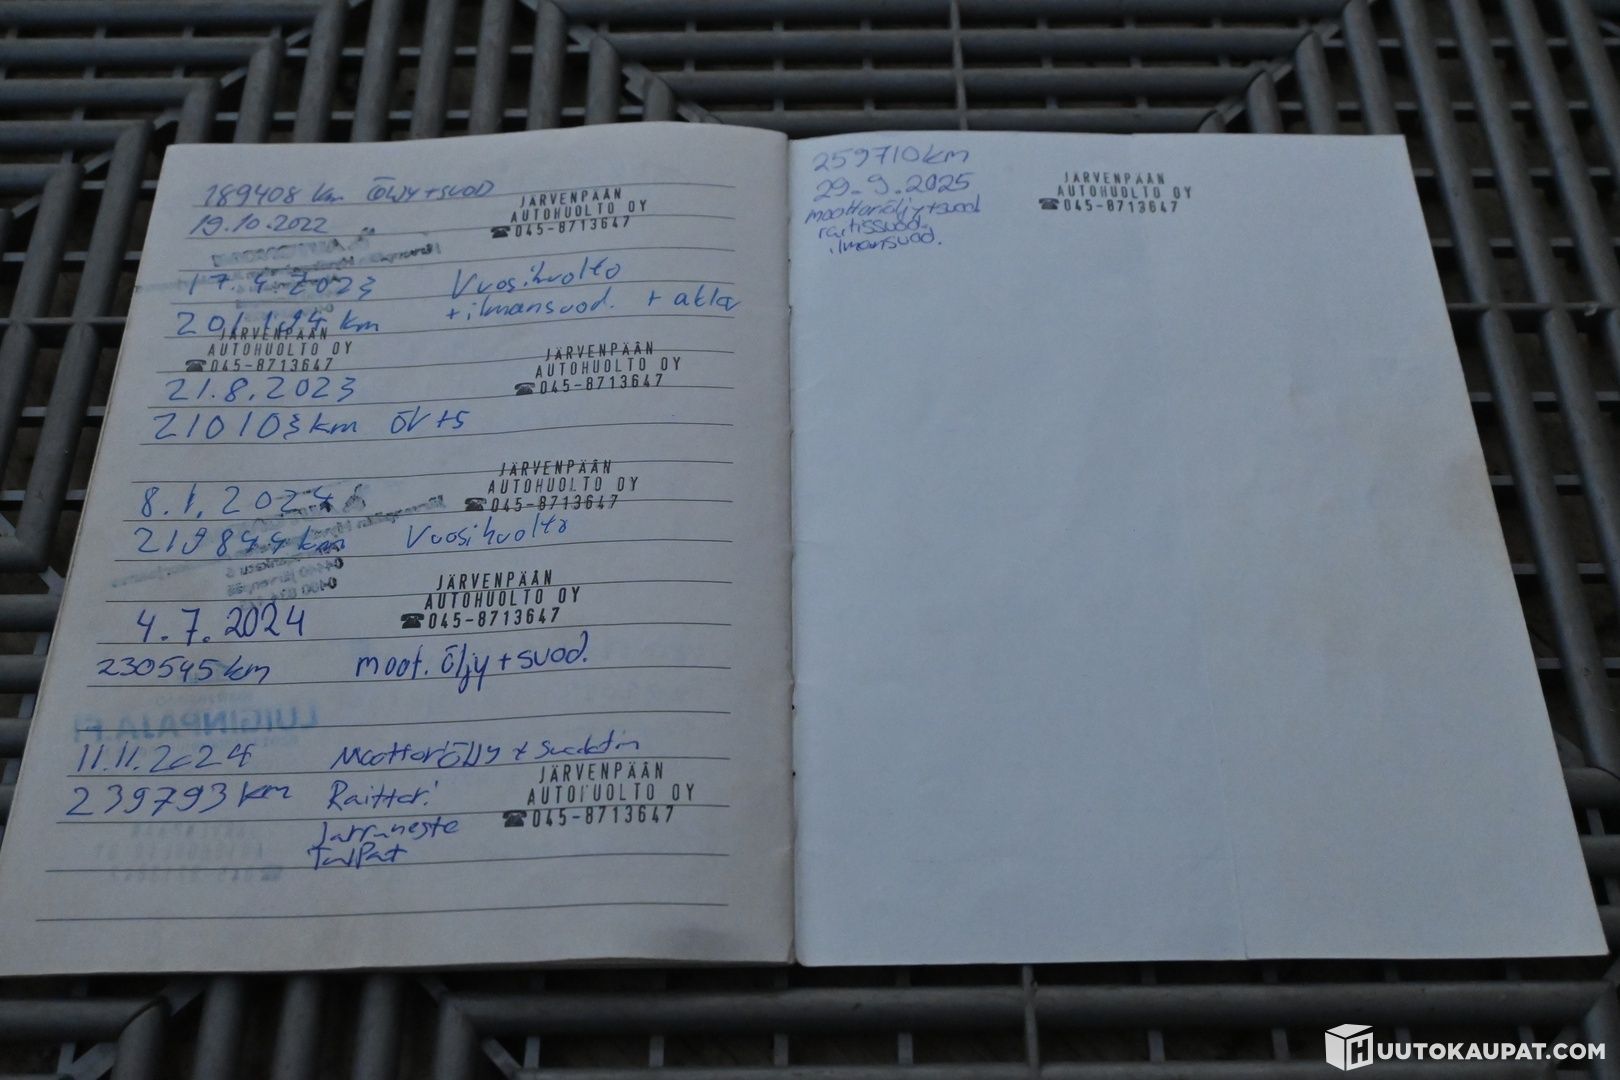 189408 km ÖLJY+SUOD
19.10.2022
JÄRVENPÄÄN
AUTOHUOLTO OY
☎045-8713647
17.4.2023 Vuosihuolto
201194 km +ilmansuod. + akku
JÄRVENPÄÄN
AUTOHUOLTO OY
☎045-8713647
JÄRVENPÄÄN
AUTOHUOLTO OY
☎045-8713647
21.8.2023
210103 km ÖV+S
JÄRVENPÄÄN
AUTOHUOLTO OY
☎045-8713647
8.1.2024
219844 km Vuosihuolto
JÄRVENPÄÄN
AUTOHUOLTO OY
☎045-8713647
4.7.2024
230545 km moot. öljy+suod.
LUIGINPAJA.FI
11.11.2024 Moottoriöljy + suodatin
239793 km Raitteri
Jarruneste
JÄRVENPÄÄN
AUTOHUOLTO OY
☎045-8713647
259710 km
29.9.2025
moottoriöljy+suod
raitissuod.
ilmansuod.
JÄRVENPÄÄN
AUTOHUOLTO OY
☎045-8713647
HUUTOKAUPAT.COM